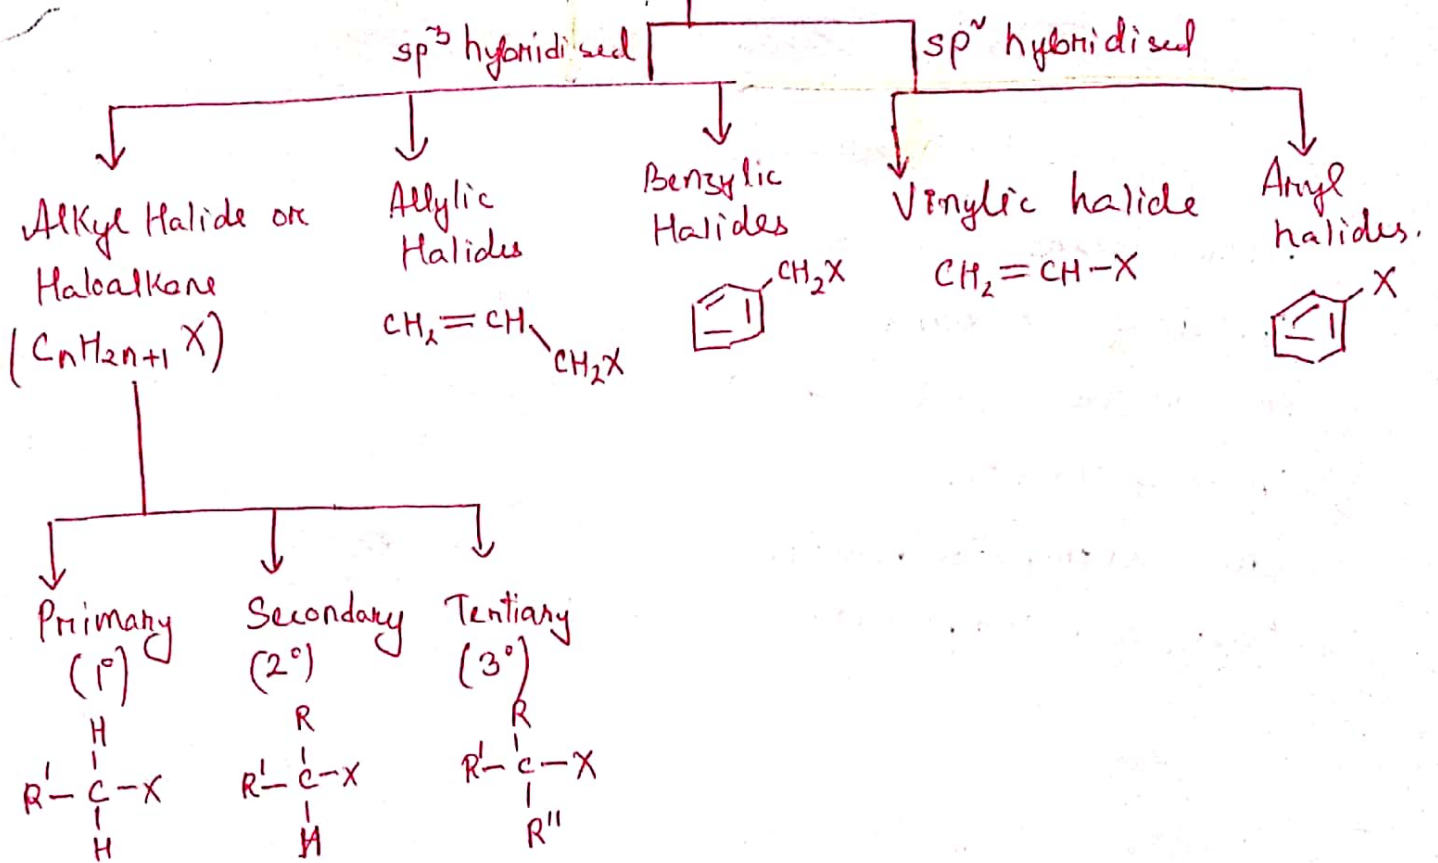 sp³ hybridised
sp² hybridised
Alkyl Halide or
Haloalkane
(CnH2n+1 X)
Allylic
Halides
CH₂=CH
CH₂X
Benzylic
Halides
CH₂X
Vinylic halide
CH₂=CH-X
Aryl
halides.
X
Primary
(1°)
H
R'-C-X
H
Secondary
(2°)
R
R'-C-X
H
Tertiary
(3°)
R
R'-C-X
R''